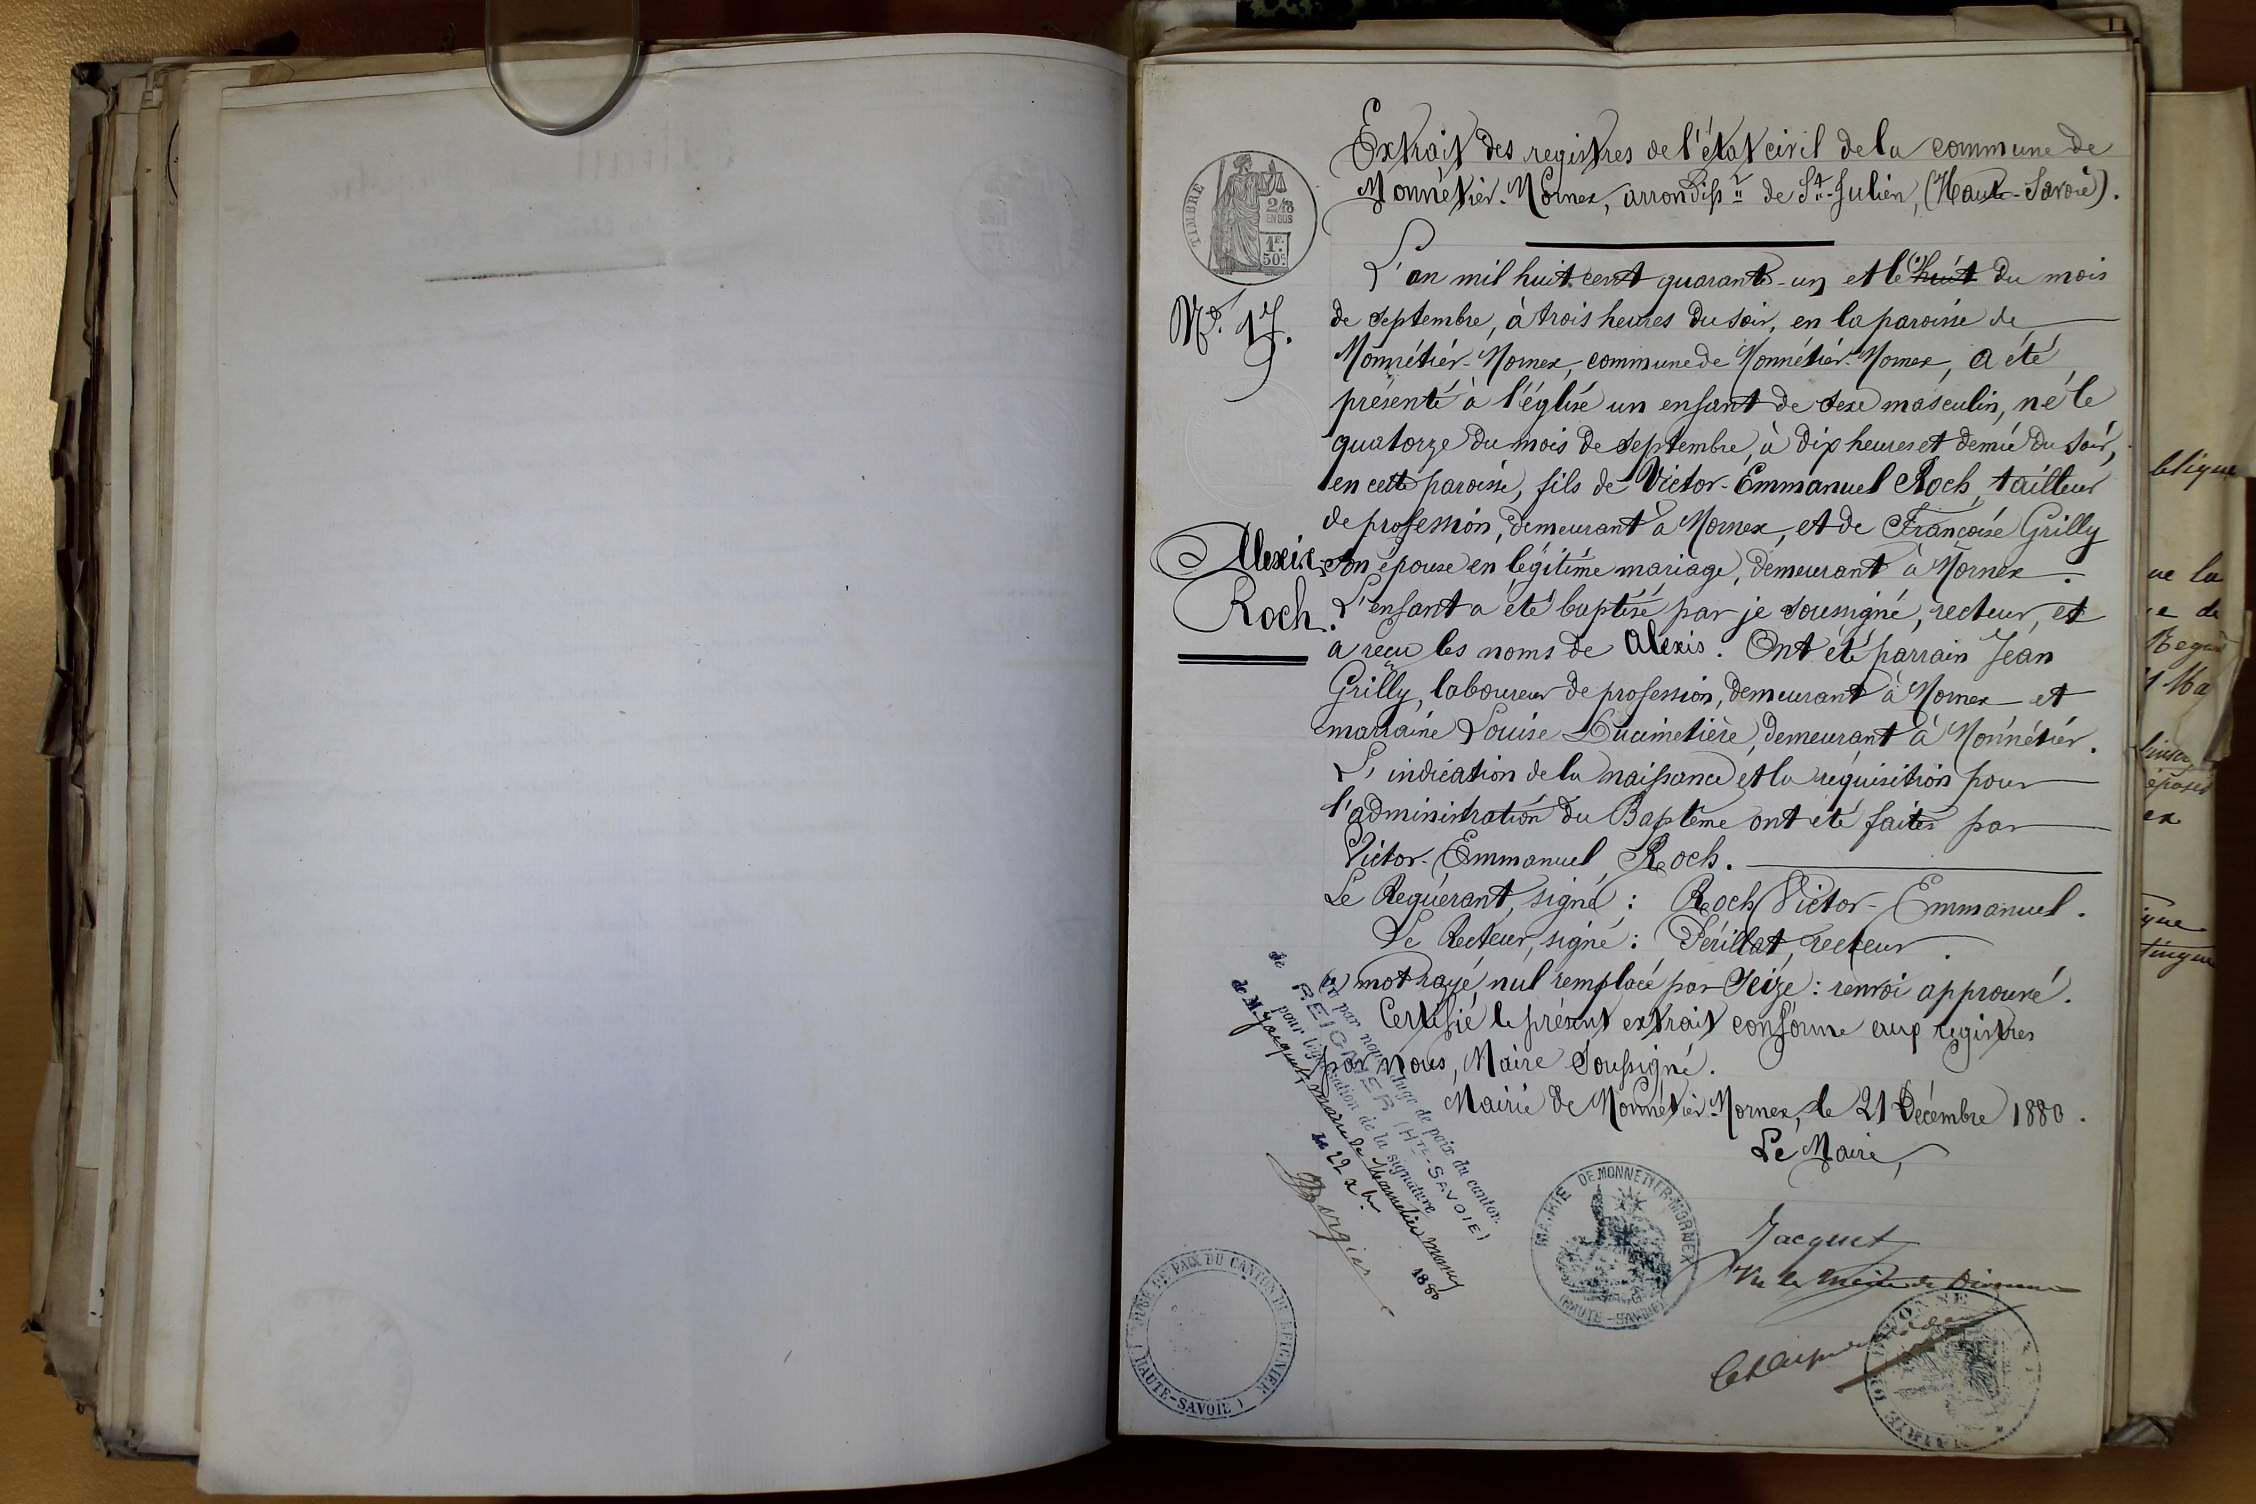 Extrait des registres de l'état civil de la commune de
Monnétier-Mornex, arrondisst de St-Julien, (Haute-Savoie).
TIMBRE
2/10
EN SUS
1F.
50c.
L'an mil huit cent quarante-un et le (1) huit du mois
N°. 17.
de septembre, à trois heures du soir, en la paroisse de
Monnétier-Mornex, commune de Monnétier-Mornex, a été
présenté à l'église un enfant de sexe masculin, né le
quatorze du mois de septembre, à dix heures et demie du soir,
en cette paroisse, fils de Victor-Emmanuel Roch, tailleur
de profession, demeurant à Mornex, et de Françoise Grilly
Alexis
Roch.
son épouse en légitime mariage, demeurant à Mornex.
L'enfant a été baptisé par je soussigné, recteur, et
a reçu les noms de Alexis. Ont été parrain Jean
Grilly, laboureur de profession, demeurant à Mornex et
marraine Louise Ducimetière, demeurant à Monnétier.
L'indication de la naissance et la réquisition pour
l'administration du Baptême ont été faites par
Victor-Emmanuel Roch.
Le Requérant, signé : Roch Victor-Emmanuel.
Le Recteur, signé : Périllat, recteur.
(1) mot rayé nul remplacé par Seize : renvoi approuvé.
Certifié le présent extrait conforme aux registres
par nous, Maire soussigné.
Mairie de Monnétier-Mornex, le 21 Décembre 1880.
Le Maire,
Jacquet
MAIRIE DE MONNETIER-MORNEX
(HAUTE-SAVOIE)
Vu par nous Juge de paix du canton
de REIGNIER (HTE-SAVOIE)
pour légalisation de la signature
de M. Jacquet, maire de Monnetier Mornex
le 22 xbre 1880
JUGE DE PAIX DU CANTON DE REIGNIER
(HAUTE-SAVOIE)
Vu la Mairie de Divonne
MAIRIE DE DIVONNE
blique
ue la
e de